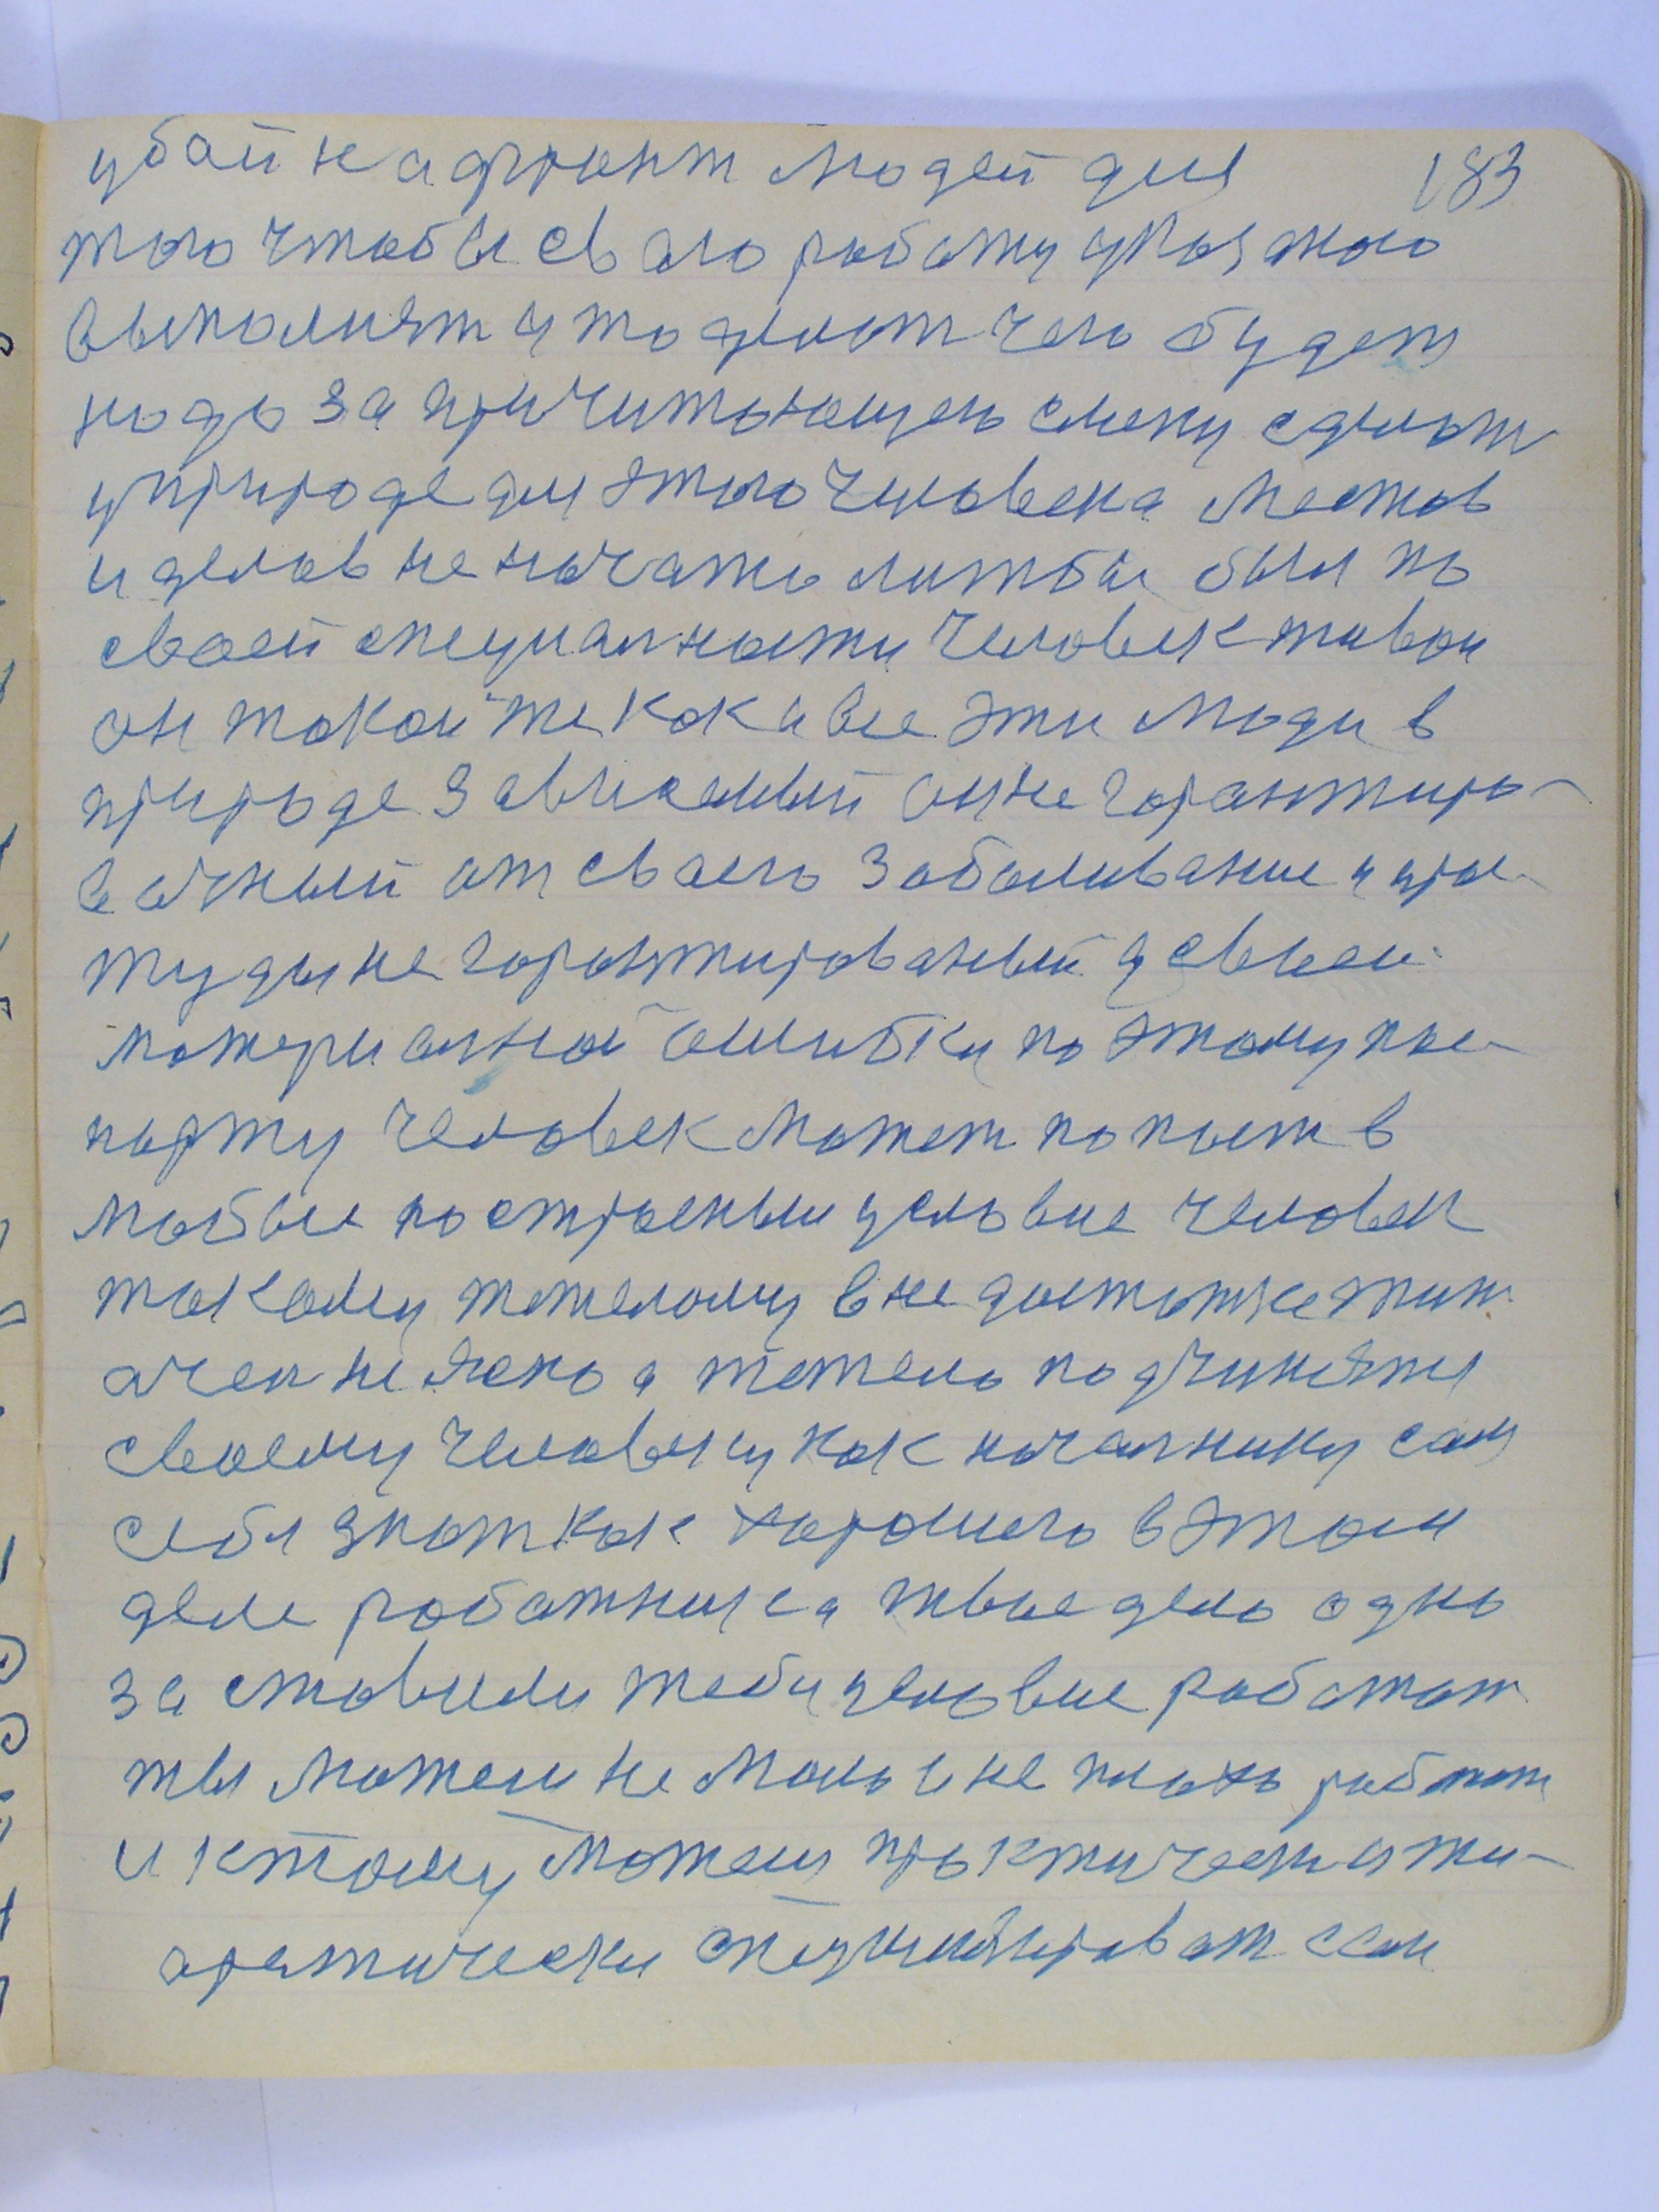 убой на фронт людей для 183
того чтобы сваю работу указаную
выполнят и то делот чего будет
надо за причитающею смену сделот
у природе для этого человека местов
и делов не почать лижбы был по
своей специалности человек живои
он токой же кок и все эти люди в
природе зависемый он не горантиро-
ваный от своего заболивание и про-
студы не горонтированый у своеи
мотериалной ошибки по этому пас-
порту человек может попаст в
любые построеные условие человек
токому тежелому в недостатке жит
очен не легко а тежело подчинятся
своему человеку как началнику сам
себя знат как хорошего в этом
деле работника а твое дело одно
заставили тебя условие работат
ты можеш не мало и не плохо работат
и к тому можеш практически и ти-
аретически специлизироват сам